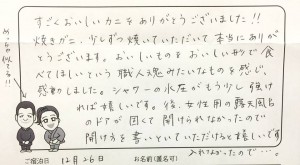 すごくおいしいカニをありがとうございました!!
焼きガニ、少しずつ焼いていただいて本当にありが
とうございます。おいしいものをおいしい形で食
べてほしいという職人魂みたいなものを感じ、
感動しました。シャワーの水圧がもう少し強け
れば嬉しいです。後、女性用の露天風呂
のドアが固くて開けられなかったので
開け方を書いといていただけると嬉しいです
入れてなかったので…。
めっちゃ似てる!!
ご宿泊日 12月26日 お名前(匿名可)